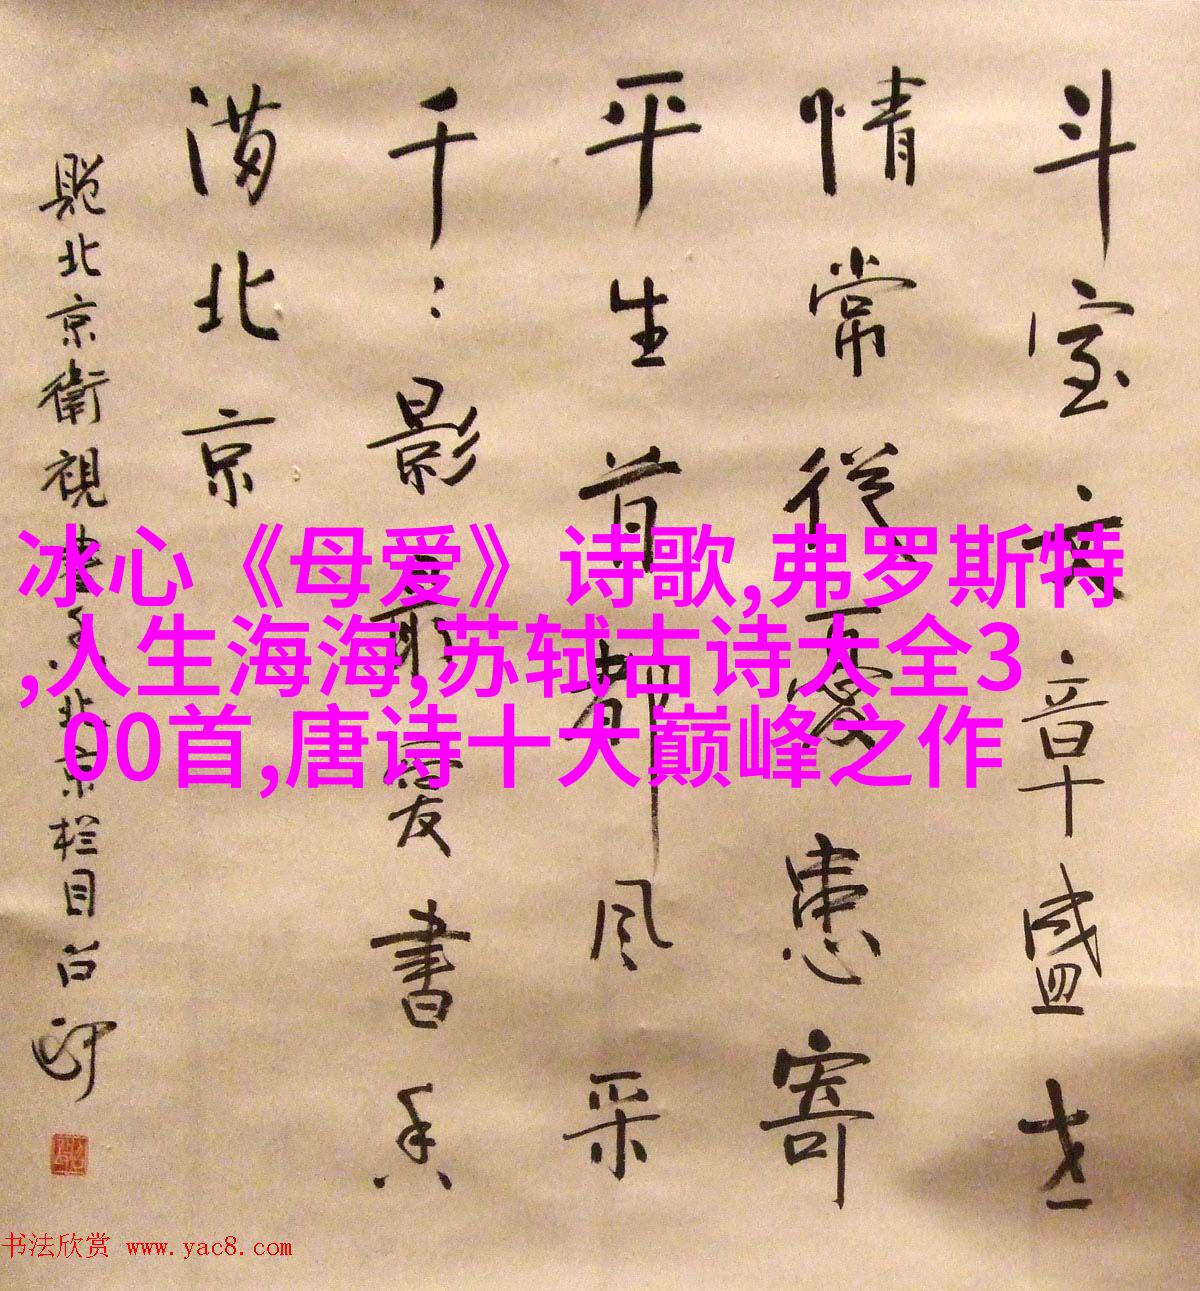 斗室文章盛世
情常從憂患寄
平生首都风采
千：影最愛書香
满北京
题北京衛視書香北京栏目
冰心《母爱》诗歌,弗罗斯特
,人生海海,苏轼古诗大全3
00首,唐诗十大巅峰之作
书法欣赏 www.yac8.com